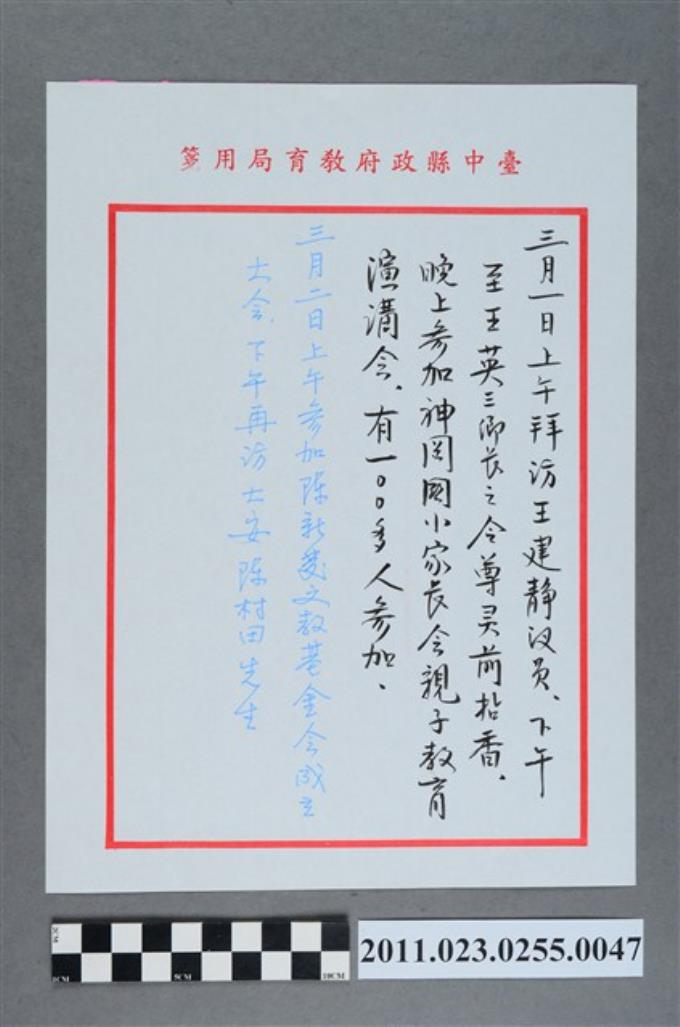 臺中縣政府教育局用箋
三月一日上午拜访王建静议员、下午
至王英三鄉长之令尊灵前拈香、
晚上参加神岡國小家长会親子教育
演講会、有一〇〇多人参加、
三月二日上午参加陈新發文教基金会成立
大会、下午再访大安陈村田先生
2011.023.0255.0047
0CM
5CM
10CM